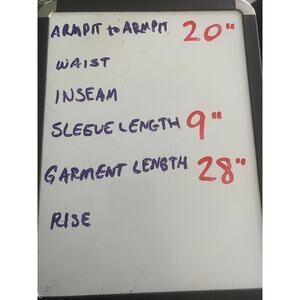 ARMPIT to ARMPIT 20"
WAIST
INSEAM
SLEEVE LENGTH 9"
GARMENT LENGTH 28"
RISE